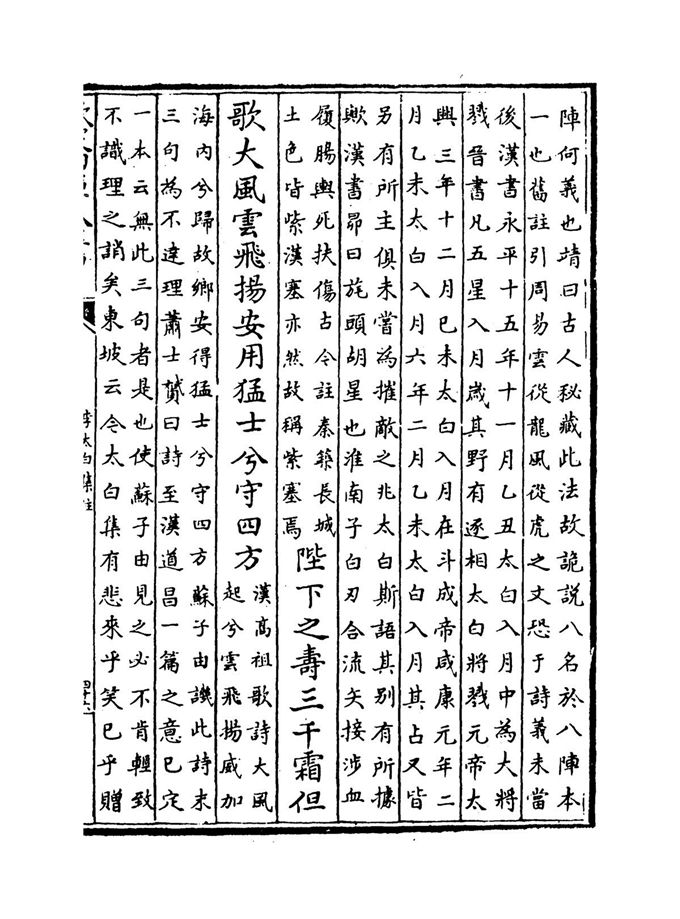 陣何義也靖曰古人秘藏此法故詭説八名於八陣本
一也舊註引周易雲從龍風從虎之文恐于詩義未當
後漢書永平十五年十一月乙丑太白入月中為大將
戮晉書凡五星入月歲其野有逐相太白將戮元帝太
興三年十二月巳未太白入月在斗成帝咸康元年二
月乙未太白入月六年二月乙未太白入月其占又皆
另有所主俱未嘗為摧敵之兆太白斯語其別有所據
歟漢書昴曰旄頭胡星也淮南子白刃合流矢接渉血
履腸輿死扶傷古今註秦築長城
土色皆紫漢塞亦然故稱紫塞焉
陛下之壽三千霜但
歌大風雲飛揚安用猛士兮守四方
漢高祖歌詩大風
起兮雲飛揚威加
海内兮歸故鄉安得猛士兮守四方蘇子由譏此詩末
三句為不達理蕭士贇曰詩至漢道昌一篇之意已定
一本云無此三句者是也使蘇子由見之必不肯輕致
不識理之誚矣東坡云今太白集有悲來乎笑已乎贈
李太白集注